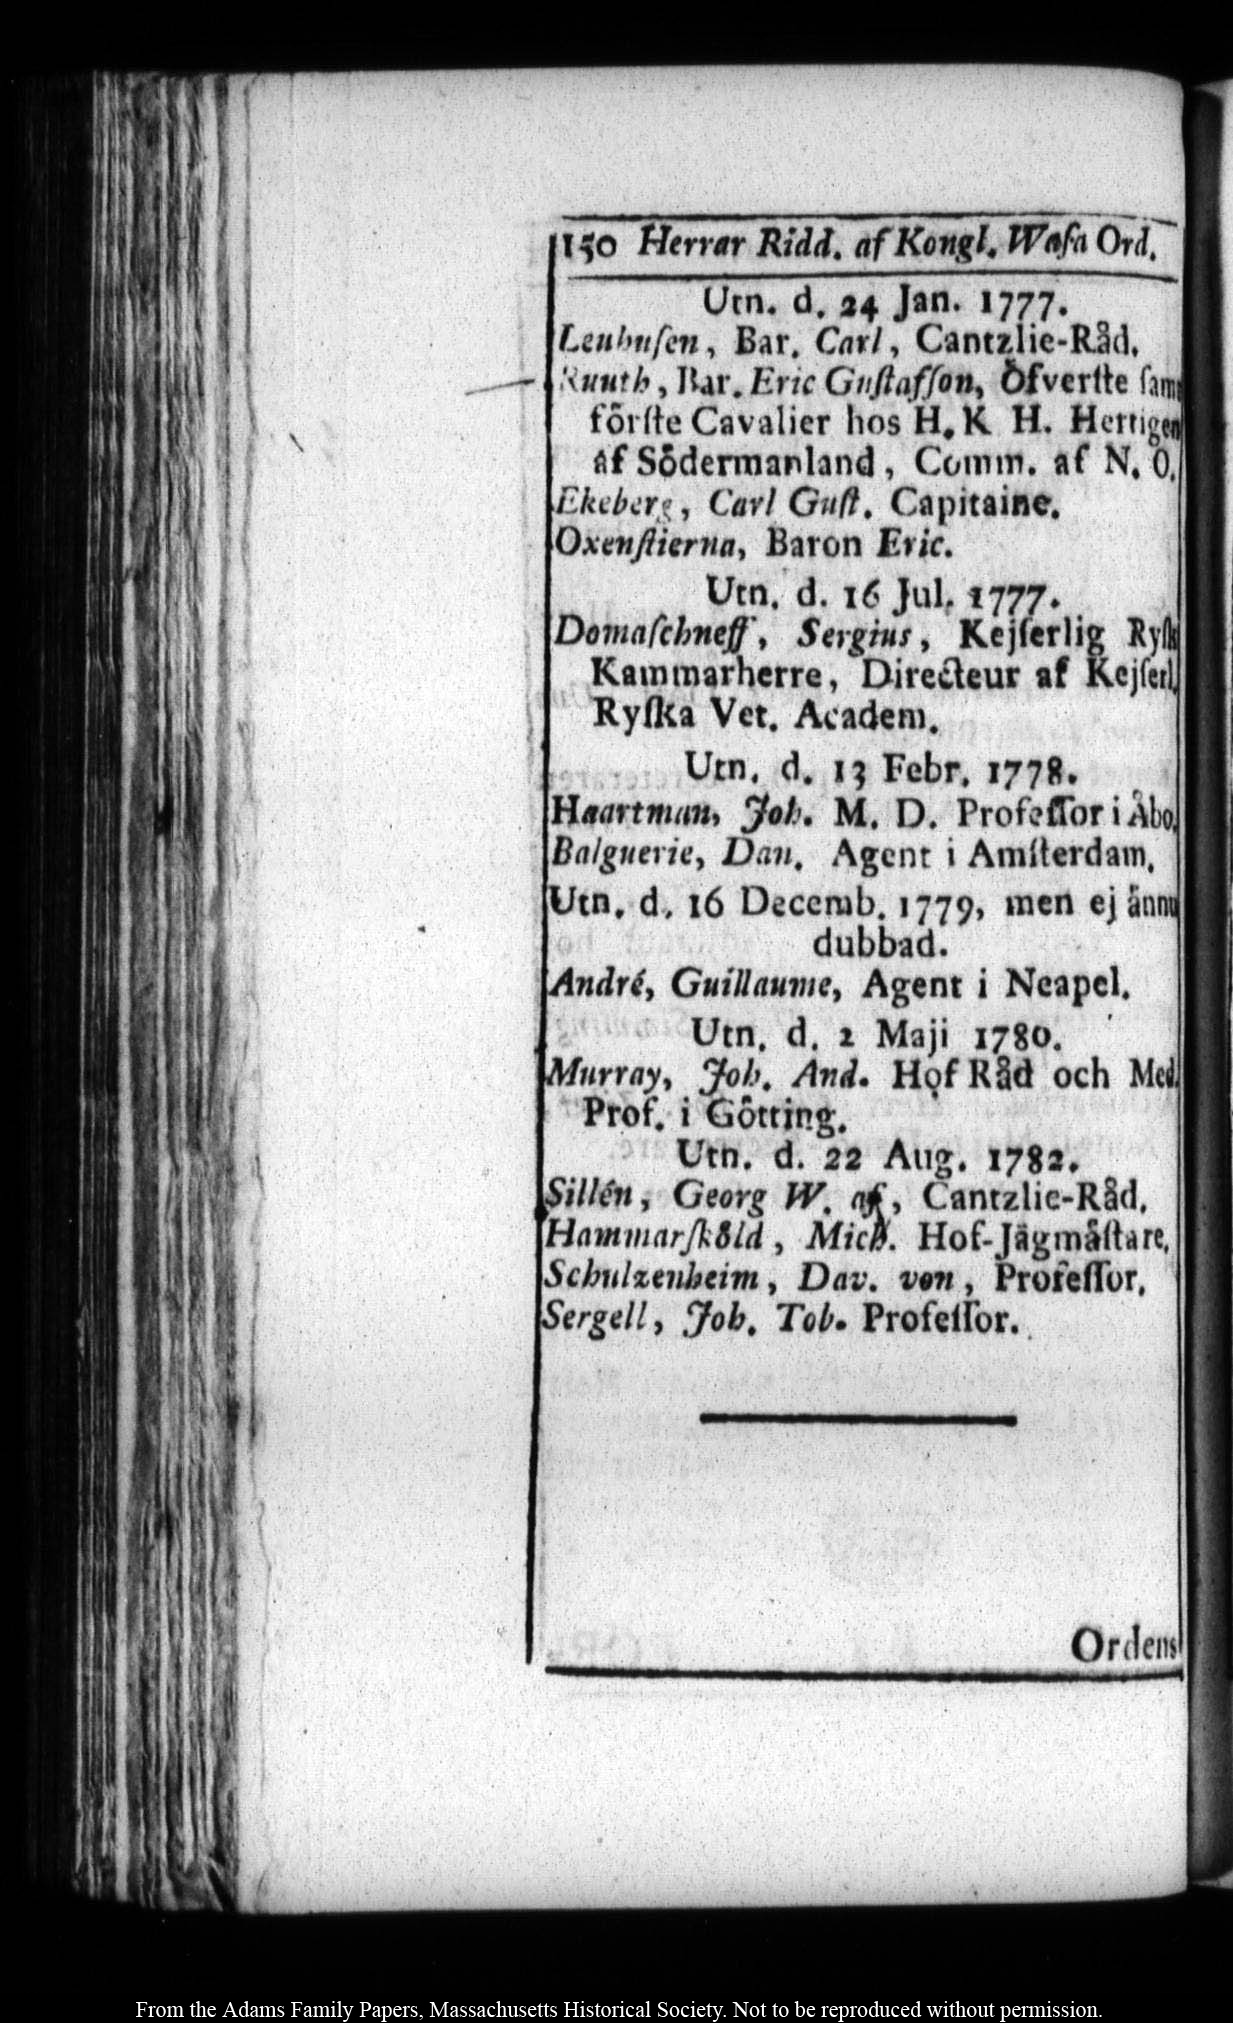 150 Herrar Ridd. af Kongl. Waſa Ord.
Utn. d. 24 Jan. 1777.
Leuhuſen, Bar. Carl, Cantzlie-Råd.
Ruuth, Bar. Eric Guſtafſſon, Öfverſte ſamt
förſte Cavalier hos H. K H. Hertigen
af Södermanland, Comm. af N. O.
Ekeberg, Carl Guſt. Capitaine.
Oxenſtierna, Baron Eric.
Utn. d. 16 Jul. 1777.
Domaſchneff, Sergius, Kejſerlig Ryſk
Kammarherre, Directeur af Kejſerl.
Ryſka Vet. Academ.
Utn. d. 13 Febr. 1778.
Haartman, Joh. M. D. Profeſſor i Åbo.
Balguerie, Dan. Agent i Amſterdam.
Utn. d. 16 Decemb. 1779, men ej ännu
dubbad.
André, Guillaume, Agent i Neapel.
Utn. d. 2 Maji 1780.
Murray, Joh. And. Hof Råd och Med.
Prof. i Götting.
Utn. d. 22 Aug. 1782.
Sillén, Georg W. af, Cantzlie-Råd.
Hammarſköld, Mich. Hof-Jägmäſtare.
Schulzenheim, Dav. von, Profeſſor.
Sergell, Joh. Tob. Profeſſor.
Ordens
From the Adams Family Papers, Massachusetts Historical Society. Not to be reproduced without permission.